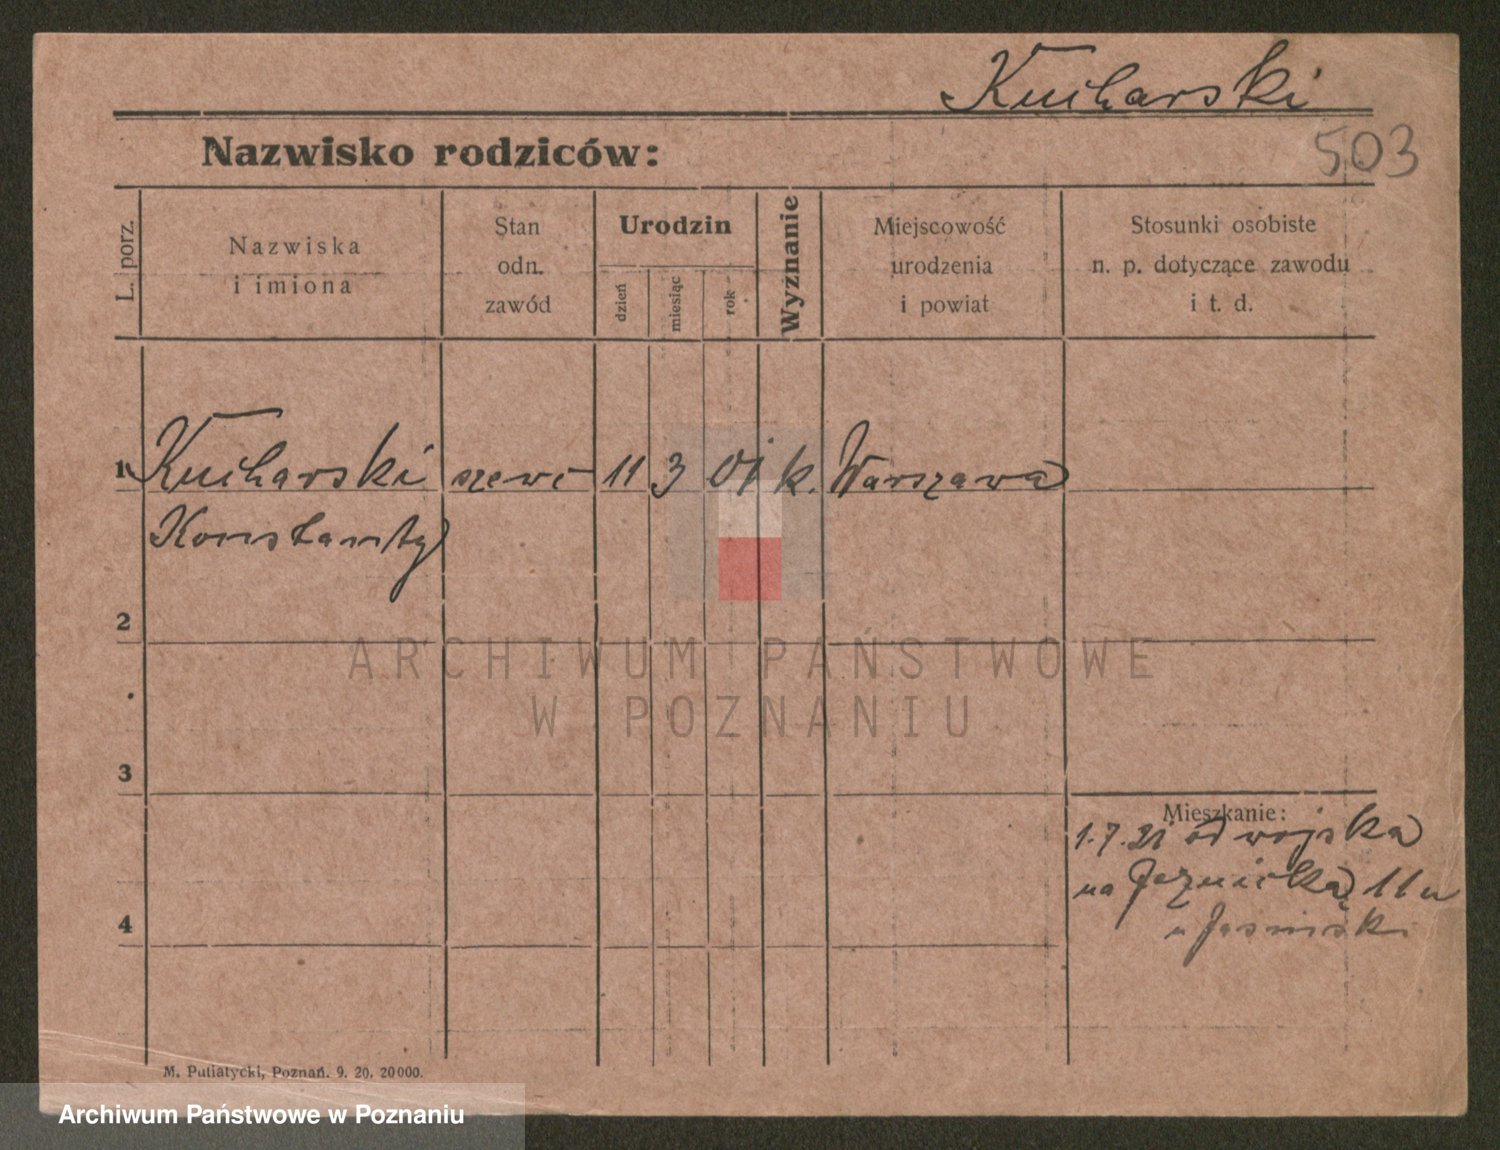 Kucharski
503
Nazwisko rodziców:
L. porz.
Nazwiska
i imiona
Stan
odn.
zawód
Urodzin
dzień
miesiąc
rok
Wyznanie
Miejscowość
urodzenia
i powiat
Stosunki osobiste
n. p. dotyczące zawodu
i t. d.
1 Kucharski szewc 11 3 01 k. Warszawa
Konstanty
2
ARCHIWUM PAŃSTWOWE
W POZNANIU
3
Mieszkanie:
1.7.21 od wojska
na 11
u Jasinski
4
M. Putiatycki, Poznań. 9. 20. 20000.
Archiwum Państwowe w Poznaniu